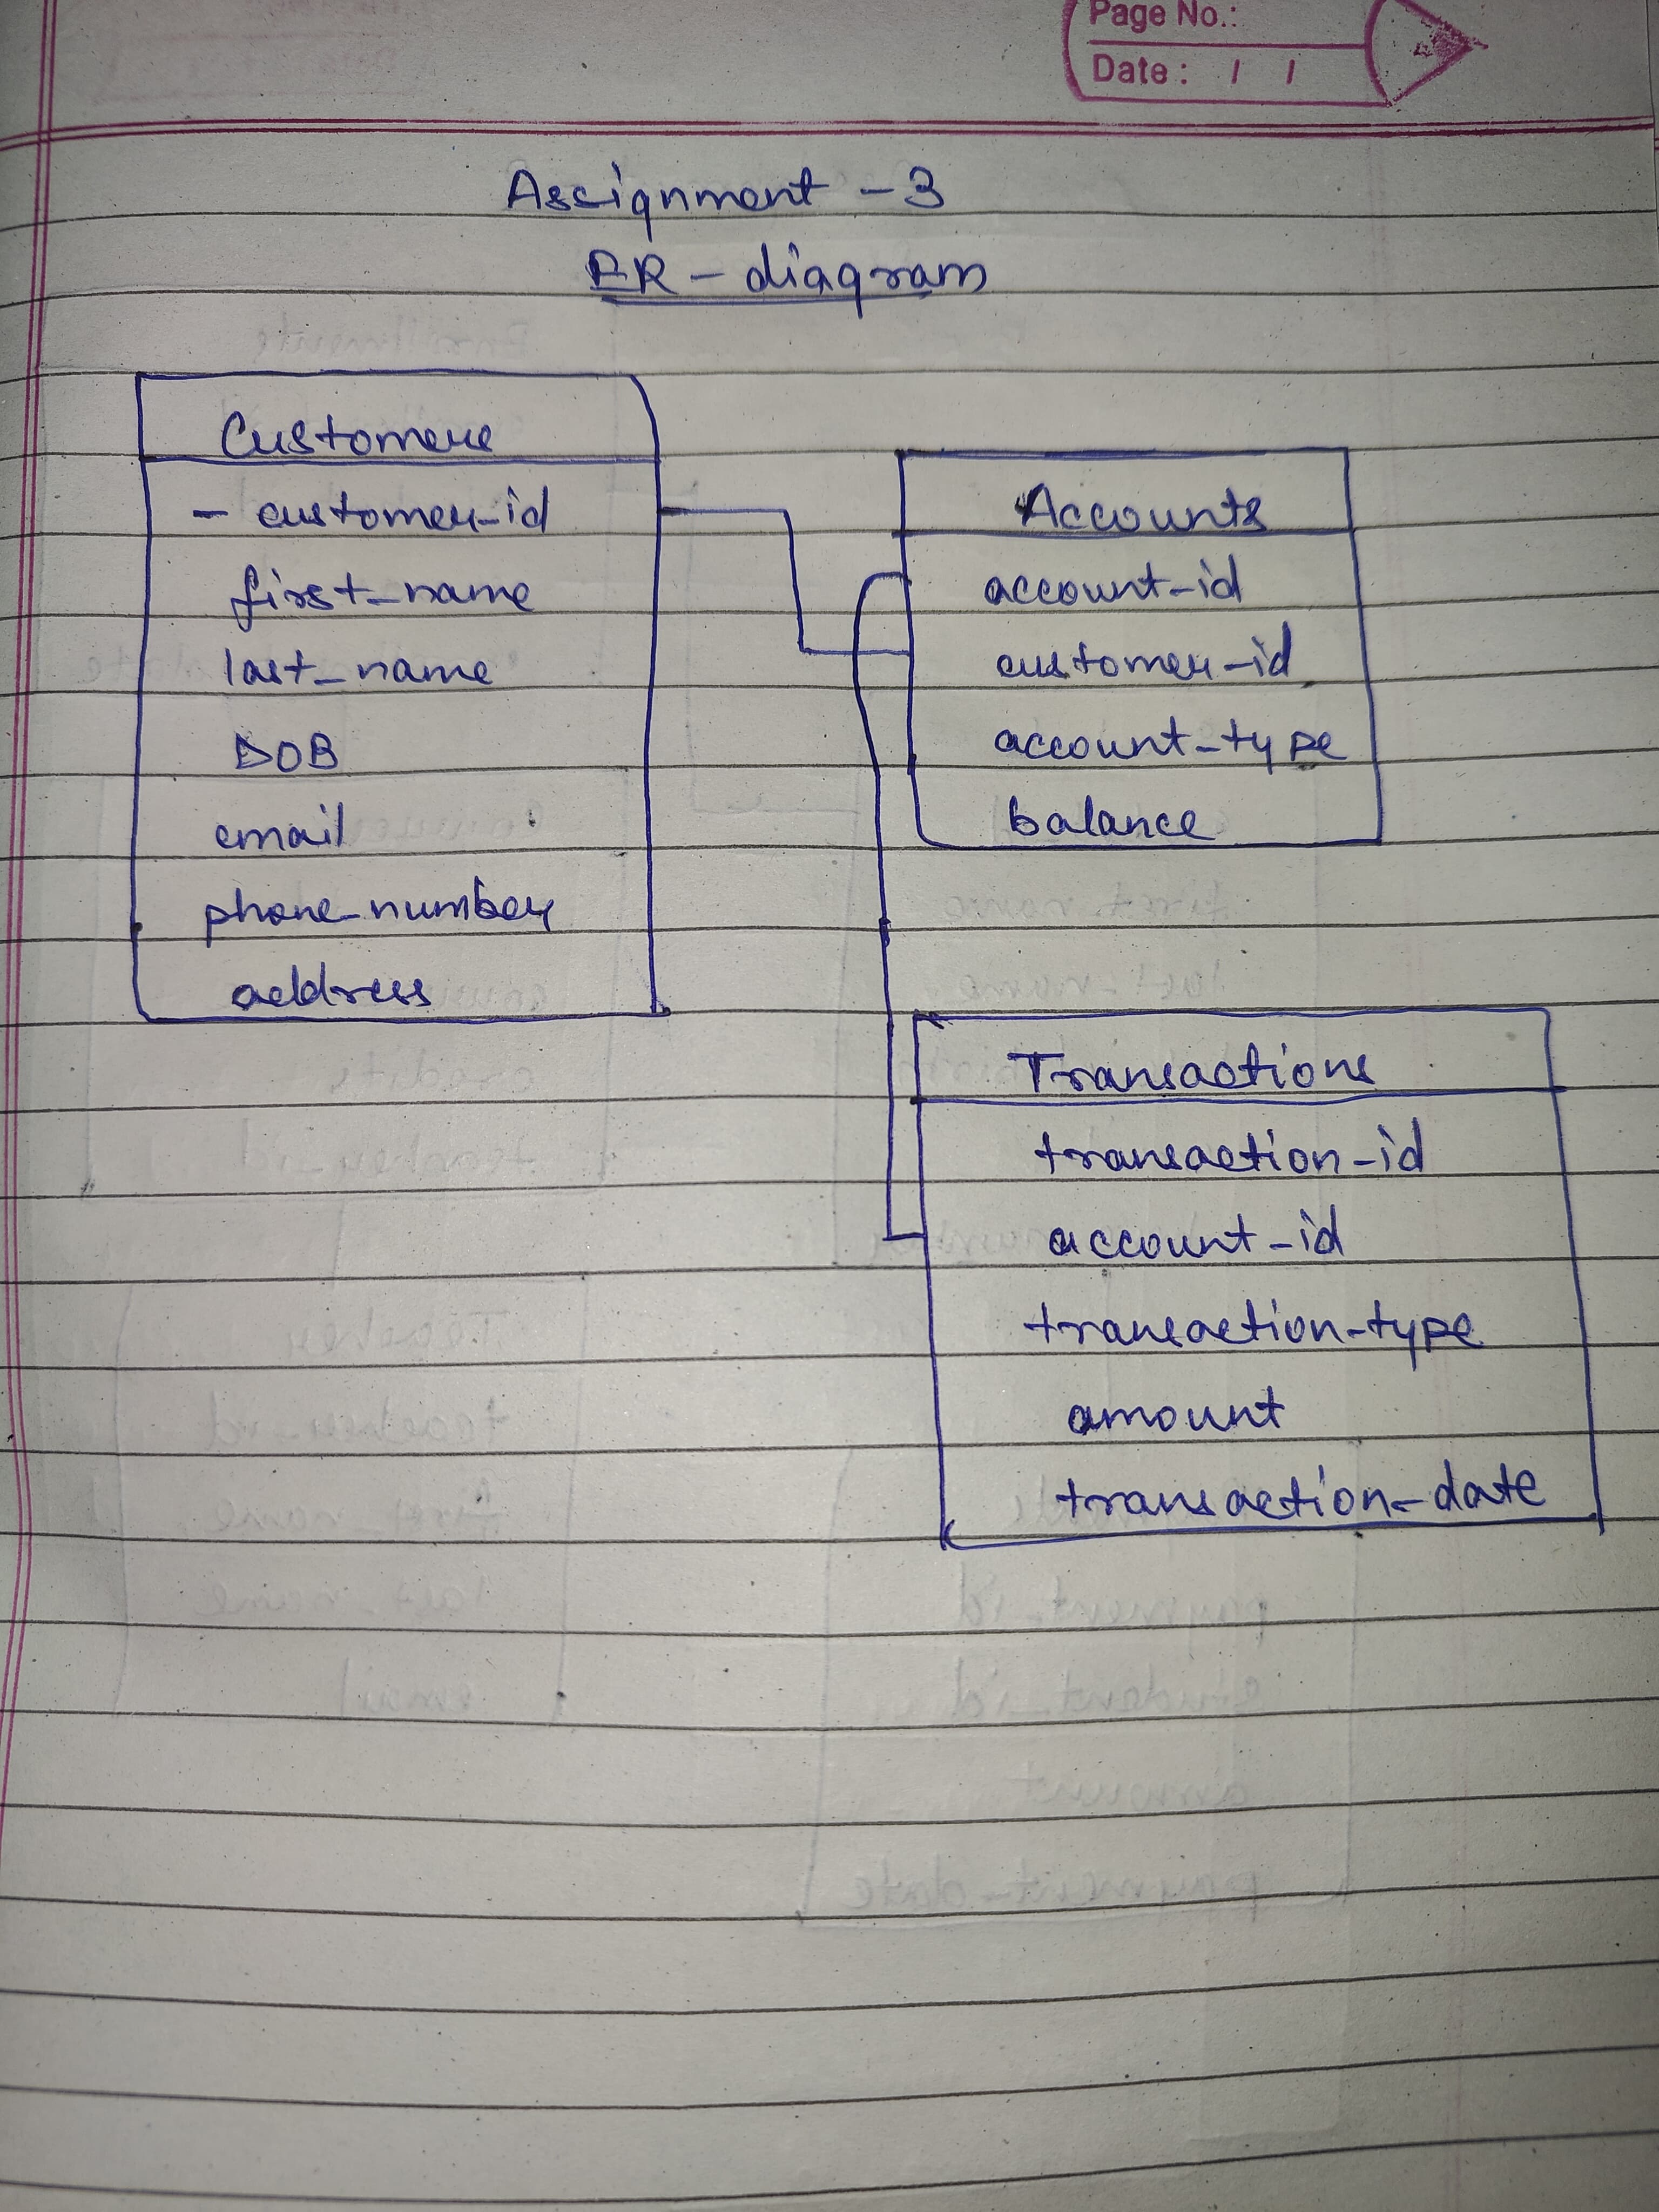 Page No.:
Date: / /
Assignment - 3
ER - diagram
Customers
- customer-id
first_name
last_name
DOB
email
phone_number
address
Accounts
account-id
customer-id
account-type
balance
Transactions
transaction-id
account-id
transaction-type
amount
transaction-date